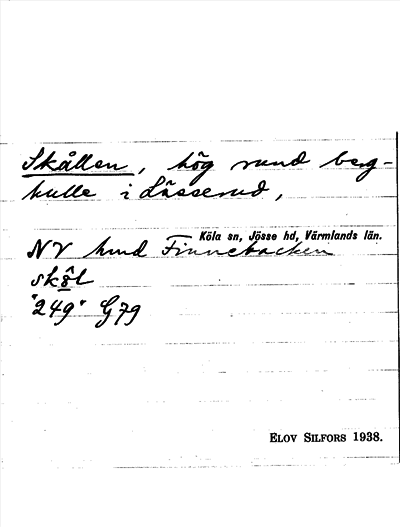 Skållen, hög rund berg-
kulle i Lässerud,
Köla sn, Jösse hd, Värmlands län.
NV hmd Finnebacken
skôl
"249" G79
ELOV SILFORS 1938.